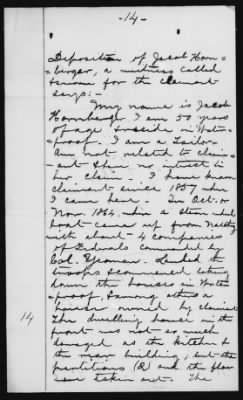 -14-
Deposition of Jacob Horn-
=berger, a witness called
for the claimant
says:-
My name is Jacob
Hornberger. I am 50 years
of age & reside in Water-
=proof. I am a Tailor.
Am not related to claim-
=ant & have no interest in
his claim. I have known
claimant since 1857 when
I came here. In Oct. or
Nov. 1864 when a stern wheel
boat came up from Natchez
with about 4 companies
of Federals commanded by
Col. Landed the
troops & commenced taking
down the houses in Water
=proof, & among others a
house owned by claimant
The dwelling house in the
front was not so much
damaged as the kitchen &
the rear building, but the
partitions (R) and the floor
were taken out. The
14